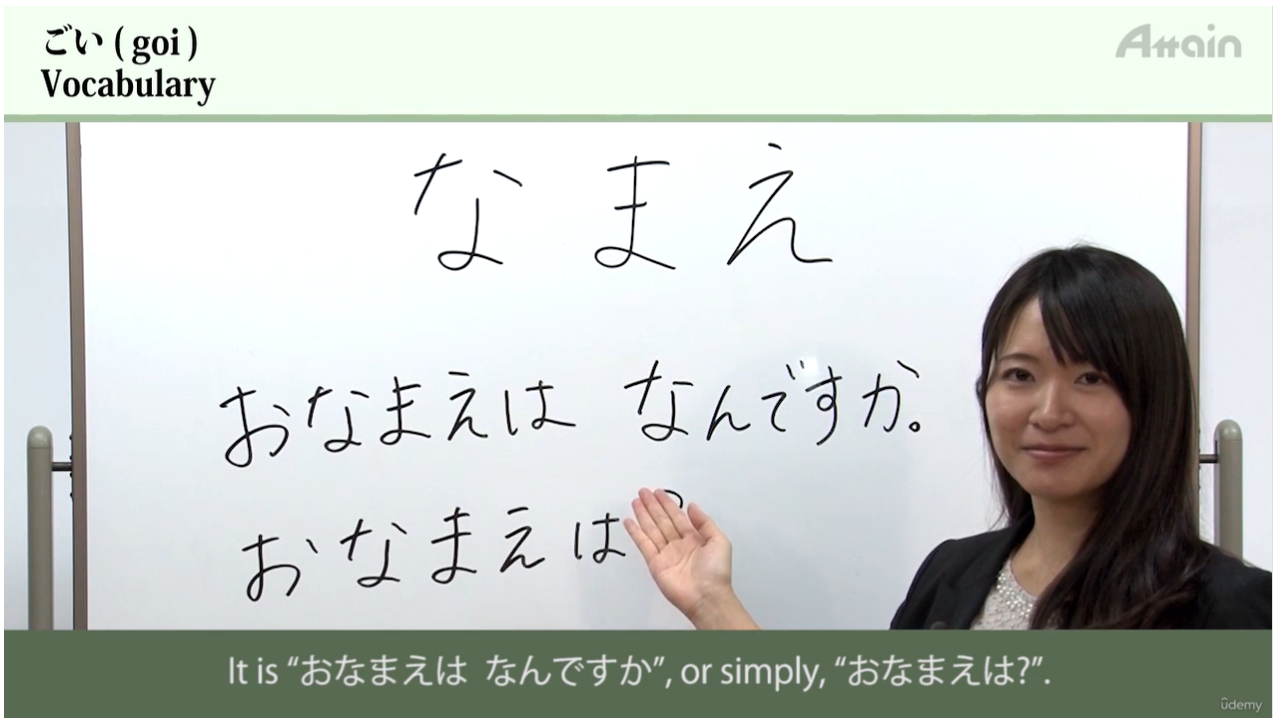 ごい ( goi )
Vocabulary
Attain
なまえ
おなまえは なんですか。
おなまえは?
It is “おなまえは なんですか”, or simply, “おなまえは?”.
ûdemy